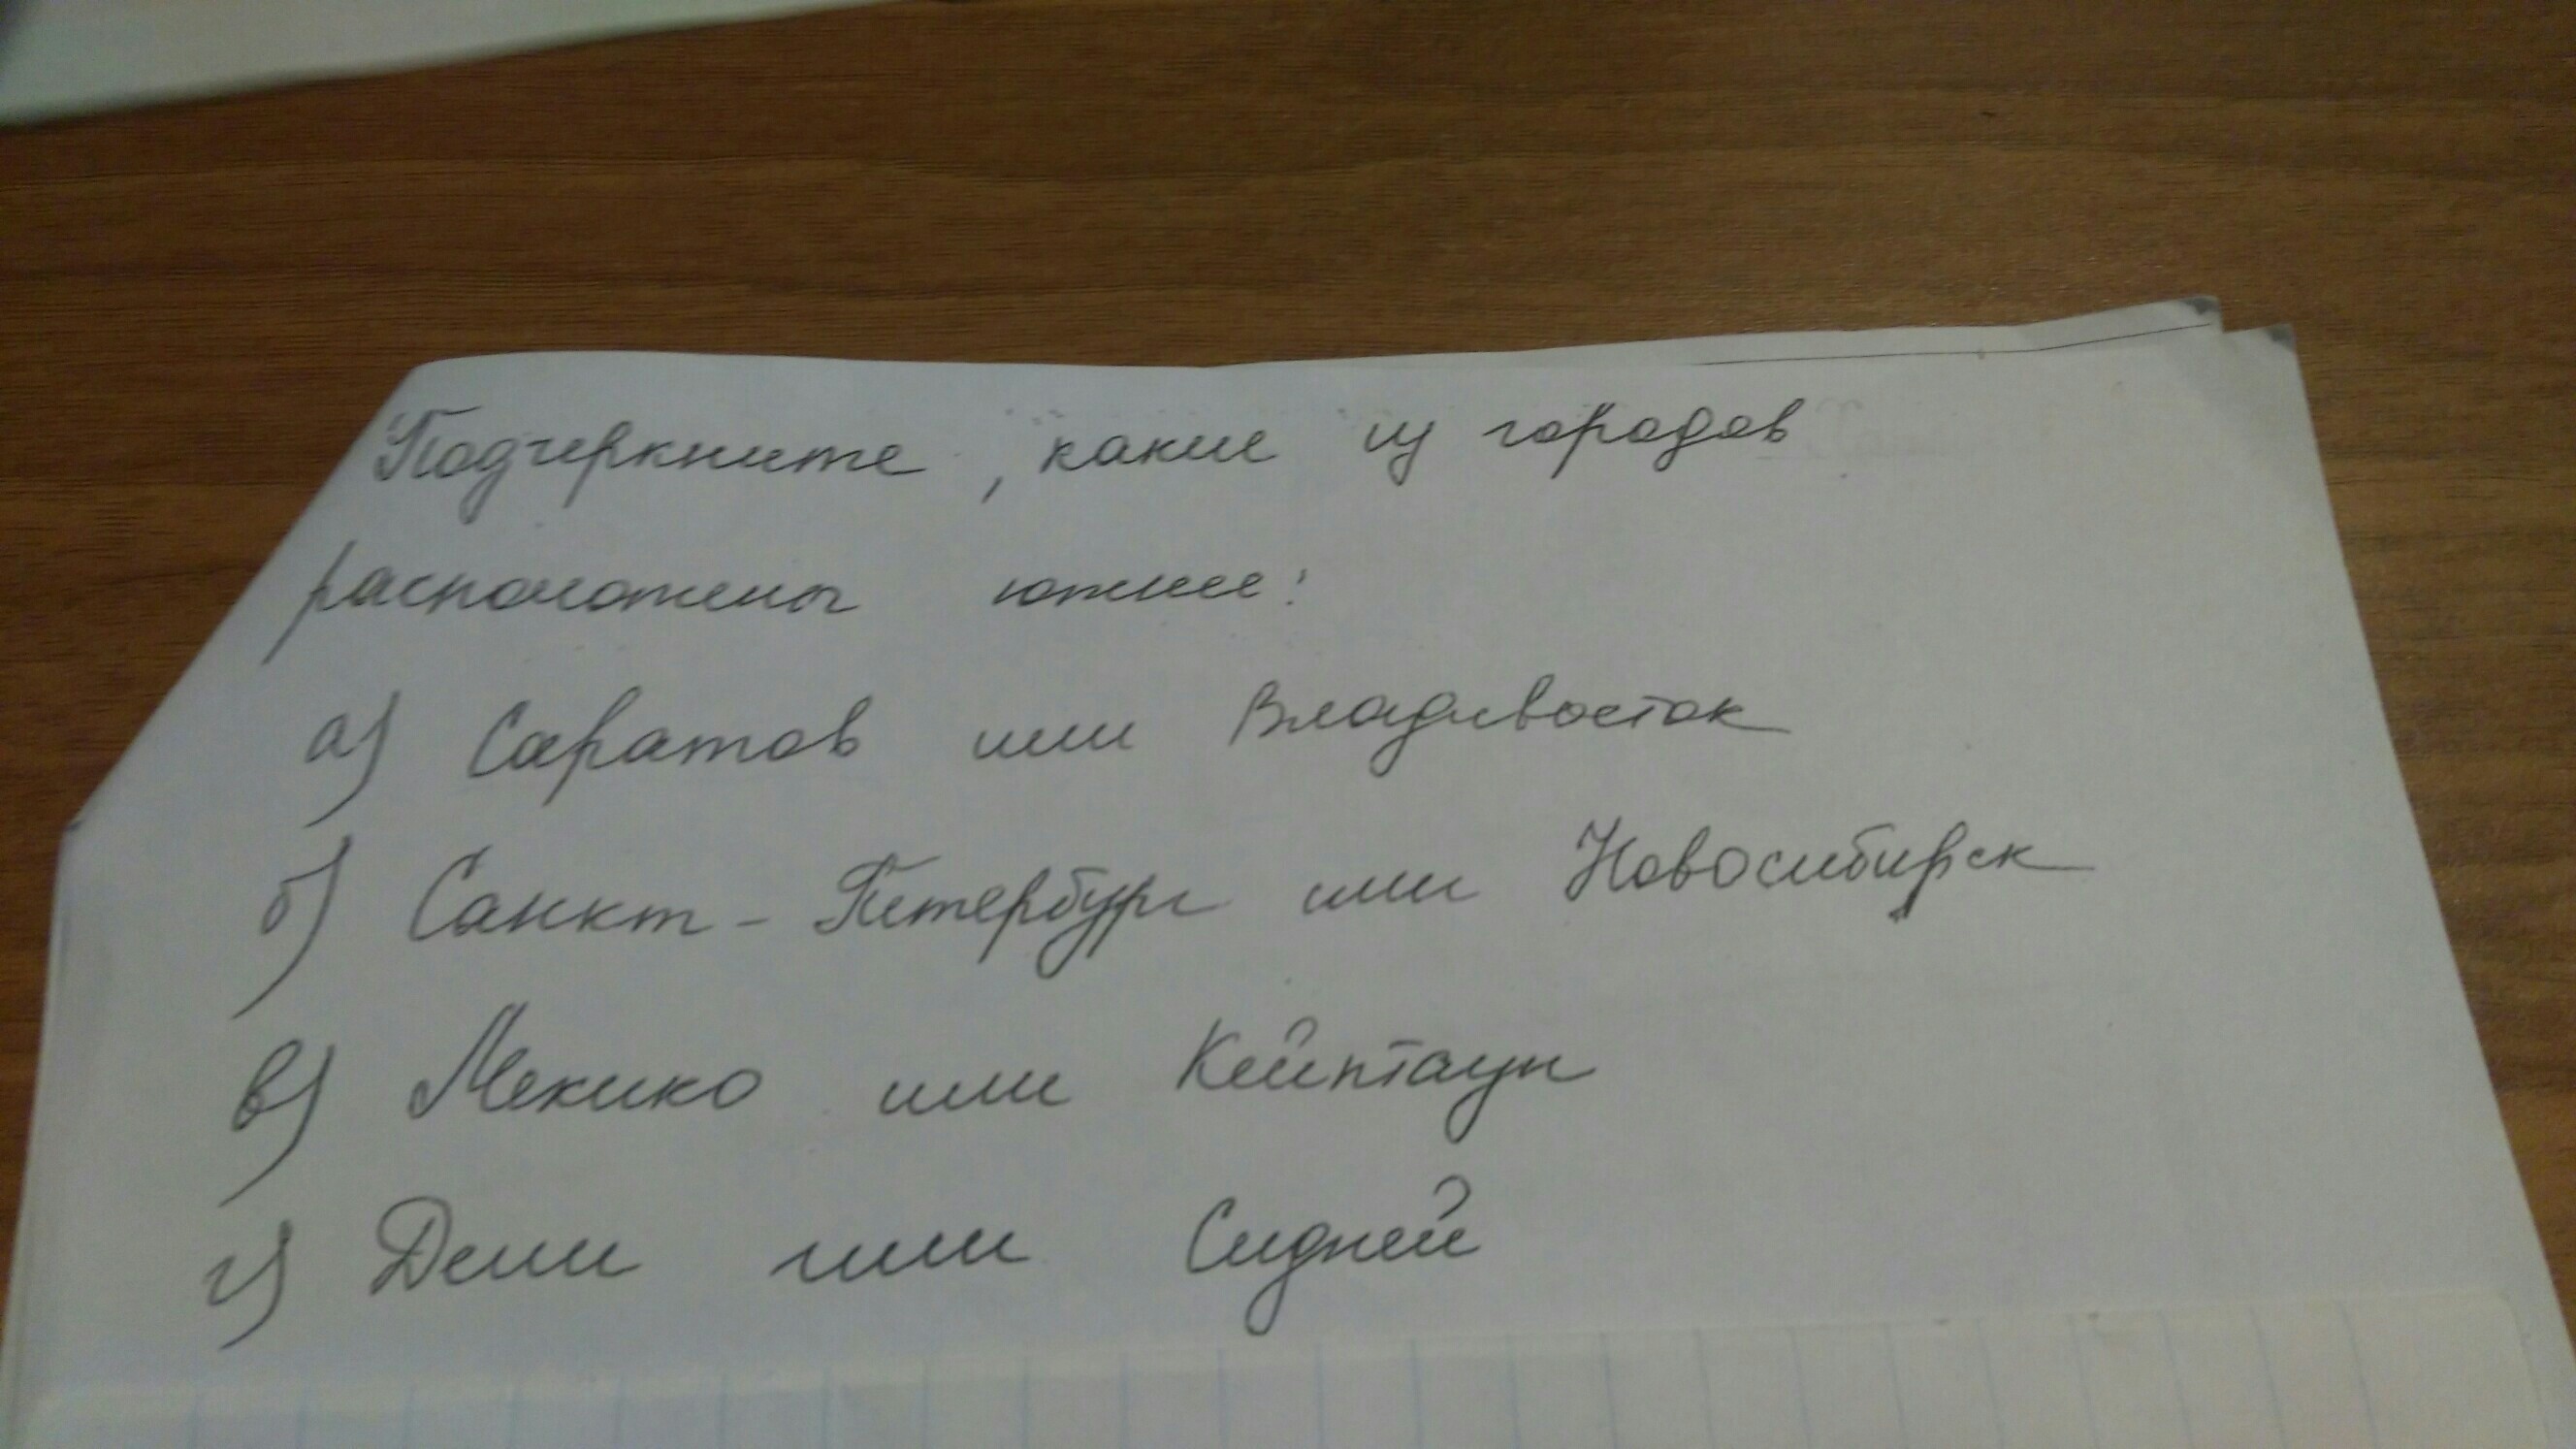 Подчеркните, какие из городов
расположены южнее:
а) Саратов или Владивосток
б) Санкт-Петербург или Новосибирск
в) Мехико или Кейптаун
г) Дели или Сидней